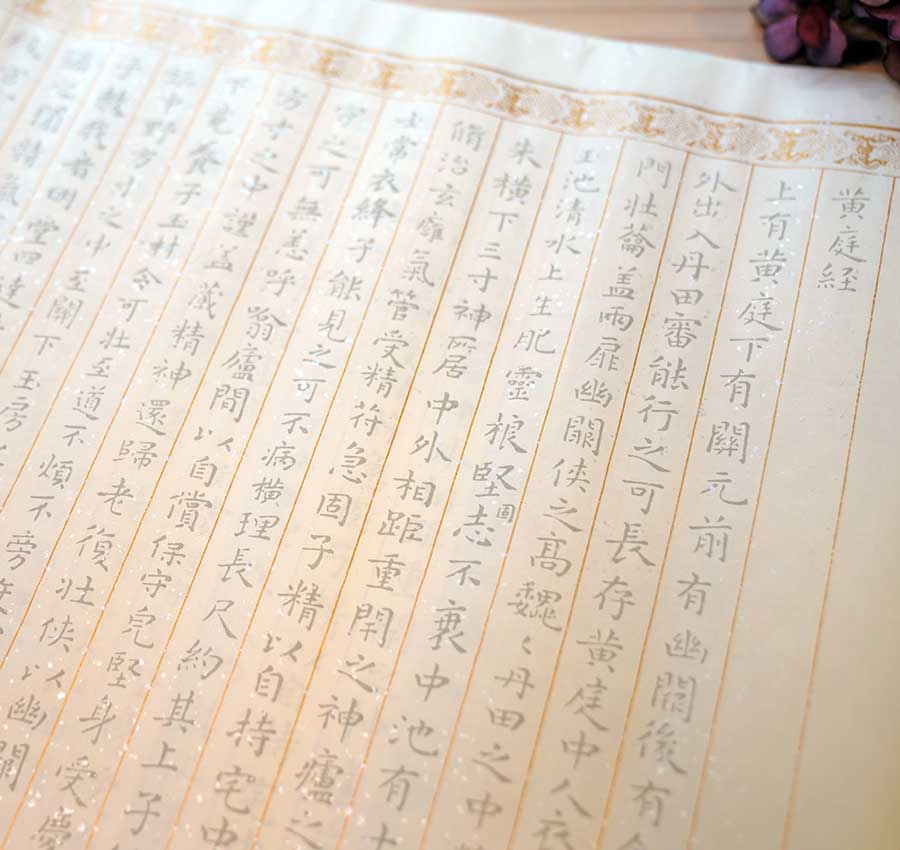 黄庭経
上有黄庭下有關元前有幽闕後有
外出入丹田審能行之可長存黄庭中人衣
門壮蘥盖兩扉幽闕侠之髙巍〻丹田之中
玉池清水上生肥靈根堅固志不衰中池有士
朱横下三寸神所居中外相距重閇之神廬之
脩治玄癰氣管受精符急固子精以自持宅中
士常衣絳子能見之可不病横理長尺約其上子
守之可無恙呼噏廬間以自償保守皃堅身受慶
方寸之中謹盖蔵精神還歸老復壮侠以幽闕
下竟養子玉樹令可壮至道不煩不旁
臨中野方寸之中至關下玉房
子教我者明堂四達
之間精氣